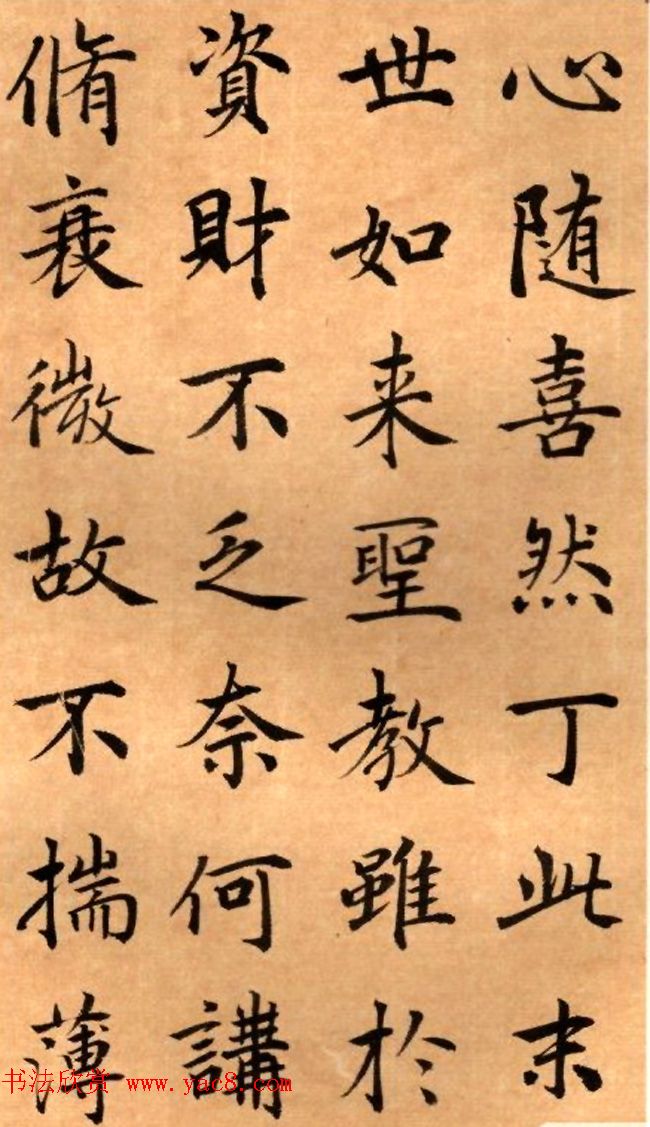 心随喜然丁此末
世如来聖教雖於
資財不乏奈何講
脩衰微故不揣薄
书法欣赏 www.yac8.com